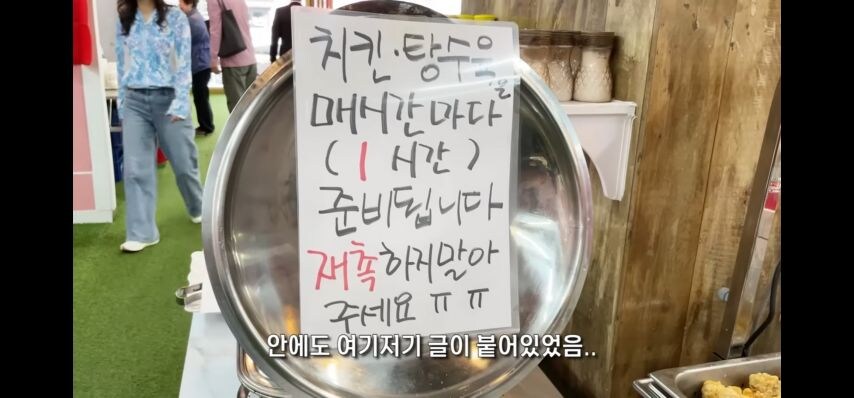 치킨·탕수육은
매시간마다
(1시간)
준비됩니다
재촉하지말아
주세요 ㅠㅠ
안에도 여기저기 글이 붙어있었음..